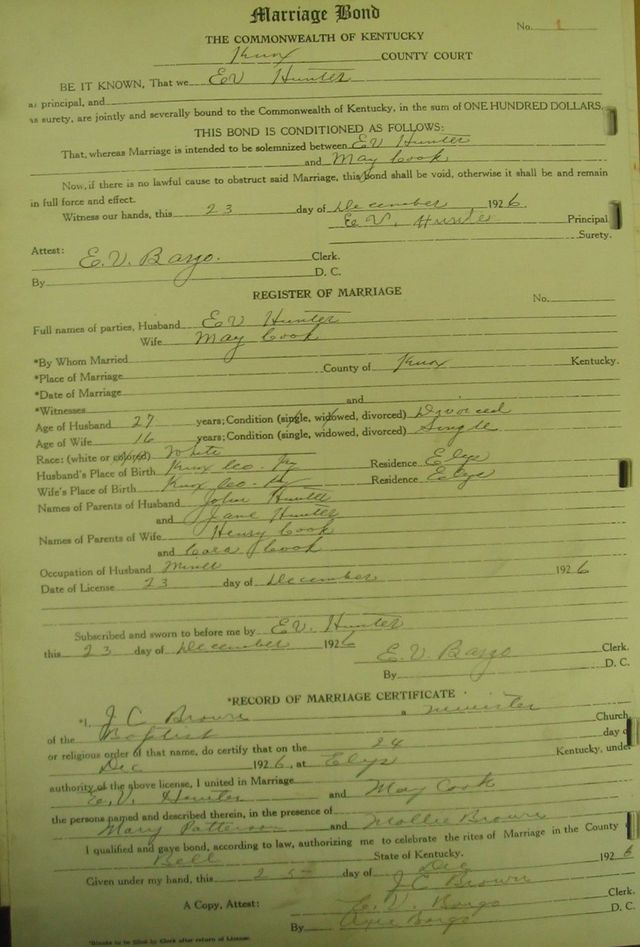 Marriage Bond
No. 1
THE COMMONWEALTH OF KENTUCKY
Knox COUNTY COURT
BE IT KNOWN, That we E V Hunter
as principal, and
as surety, are jointly and severally bound to the Commonwealth of Kentucky, in the sum of ONE HUNDRED DOLLARS,
THIS BOND IS CONDITIONED AS FOLLOWS:
That, whereas Marriage is intended to be solemnized between E V Hunter
and May Cook
Now, if there is no lawful cause to obstruct said Marriage, this bond shall be void, otherwise it shall be and remain
in full force and effect.
Witness our hands, this 23 day of December 1926.
E. V. Hunter Principal
Surety.
Attest: E. V. Bargo. Clerk.
By D. C.
REGISTER OF MARRIAGE
No.
Full names of parties, Husband E V Hunter
Wife May Cook
*By Whom Married
*Place of Marriage County of Knox Kentucky.
*Date of Marriage
*Witnesses and
Age of Husband 27 years; Condition (single, widowed, divorced) Divorced
Age of Wife 16 years; Condition (single, widowed, divorced) Single
Race: (white or colored) White
Husband's Place of Birth Knox Co. Ky Residence Elys
Wife's Place of Birth Knox Co. Ky Residence Elys
Names of Parents of Husband John Hunter
and Jane Hunter
Names of Parents of Wife Henry Cook
and Cora Cook
Occupation of Husband Miner
Date of License 23 day of December 1926
Subscribed and sworn to before me by E V. Hunter
this 23 day of December 1926
E. V. Bargo Clerk.
By D. C.
*RECORD OF MARRIAGE CERTIFICATE
*I, J C Brown a minister
of the Baptist Church,
or religious order of that name, do certify that on the 24 day of
Dec 1926, at Elys Kentucky, under
authority of the above license, I united in Marriage
E. V. Hunter and May Cook
the persons named and described therein, in the presence of
Mary Patterson and Mollie Brown
I qualified and gave bond, according to law, authorizing me to celebrate the rites of Marriage in the County
Bell State of Kentucky.
Given under my hand, this 25 day of Dec 1926
J C Brown
A Copy, Attest: E. V. Bargo Clerk.
By Bargo D. C.
*Blanks to be filled by Clerk after return of License.